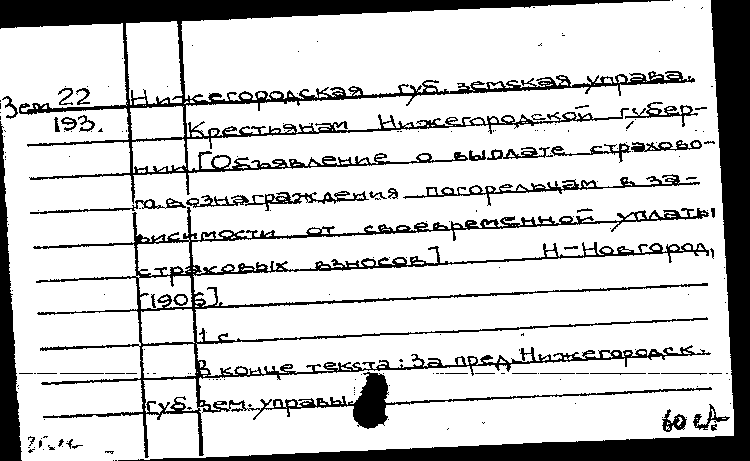 Зем 22
193.
Нижегородская губ. земская управа.
Крестьянам Нижегородской губер-
нии. [Объявление о выплате страхово-
го вознаграждения погорельцам в за-
висимости от своевременной уплаты
страховых взносов]. Н.-Новгород,
[1906].
1 с.
В конце текста: За пред. Нижегородск.
губ. зем. управы.